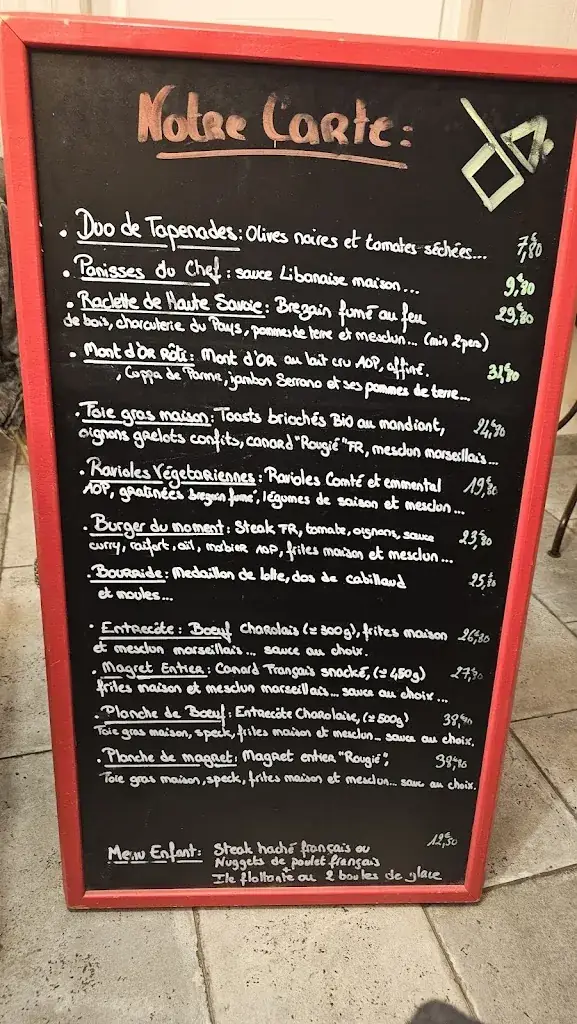 Notre Carte:
• Duo de Tapenades: Olives noires et tomates séchées... 7,80€
• Panisses du Chef: sauce Libanaise maison... 9,80€
• Raclette de Haute Savoie: Brezain fumé au feu 29,80€
de bois, charcuterie du Pays, pommes de terre et mesclun... (min 2pers)
• Mont d'Or Rôti: Mont d'Or au lait cru AOP, affiné. 31,80€
, Coppa de Parme, jambon Serrano et ses pommes de terre...
• Foie gras maison: Toasts briochés Bio au mendiant, 24,80€
oignons grelots confits, canard "Rougié" FR, mesclun marseillais...
• Ravioles Végétariennes: Ravioles Comté et emmental 19,80€
AOP, gratinées brezain fumé, légumes de saison et mesclun...
• Burger du moment: Steak FR, tomate, oignons, sauce 23,80€
curry, raifort, ail, morbier AOP, frites maison et mesclun...
• Bourride: Medaillon de lotte, dos de cabillaud 25,80€
et moules...
• Entrecôte: Boeuf Charolais (≃300g), frites maison 26,80€
et mesclun marseillais... sauce au choix.
• Magret Entier: Canard Français snacké, (≃450g) 27,80€
frites maison et mesclun marseillais... sauce au choix...
• Planche de Boeuf: Entrecôte Charolaise, (≃300g) 38,80€
Foie gras maison, speck, frites maison et mesclun... sauce au choix.
• Planche de magret: Magret entier "Rougié", 38,80€
Foie gras maison, speck, frites maison et mesclun... sauce au choix.
Menu Enfant: Steak haché français ou 12,50€
Nuggets de poulet français
+
Ile flottante ou 2 boules de glace